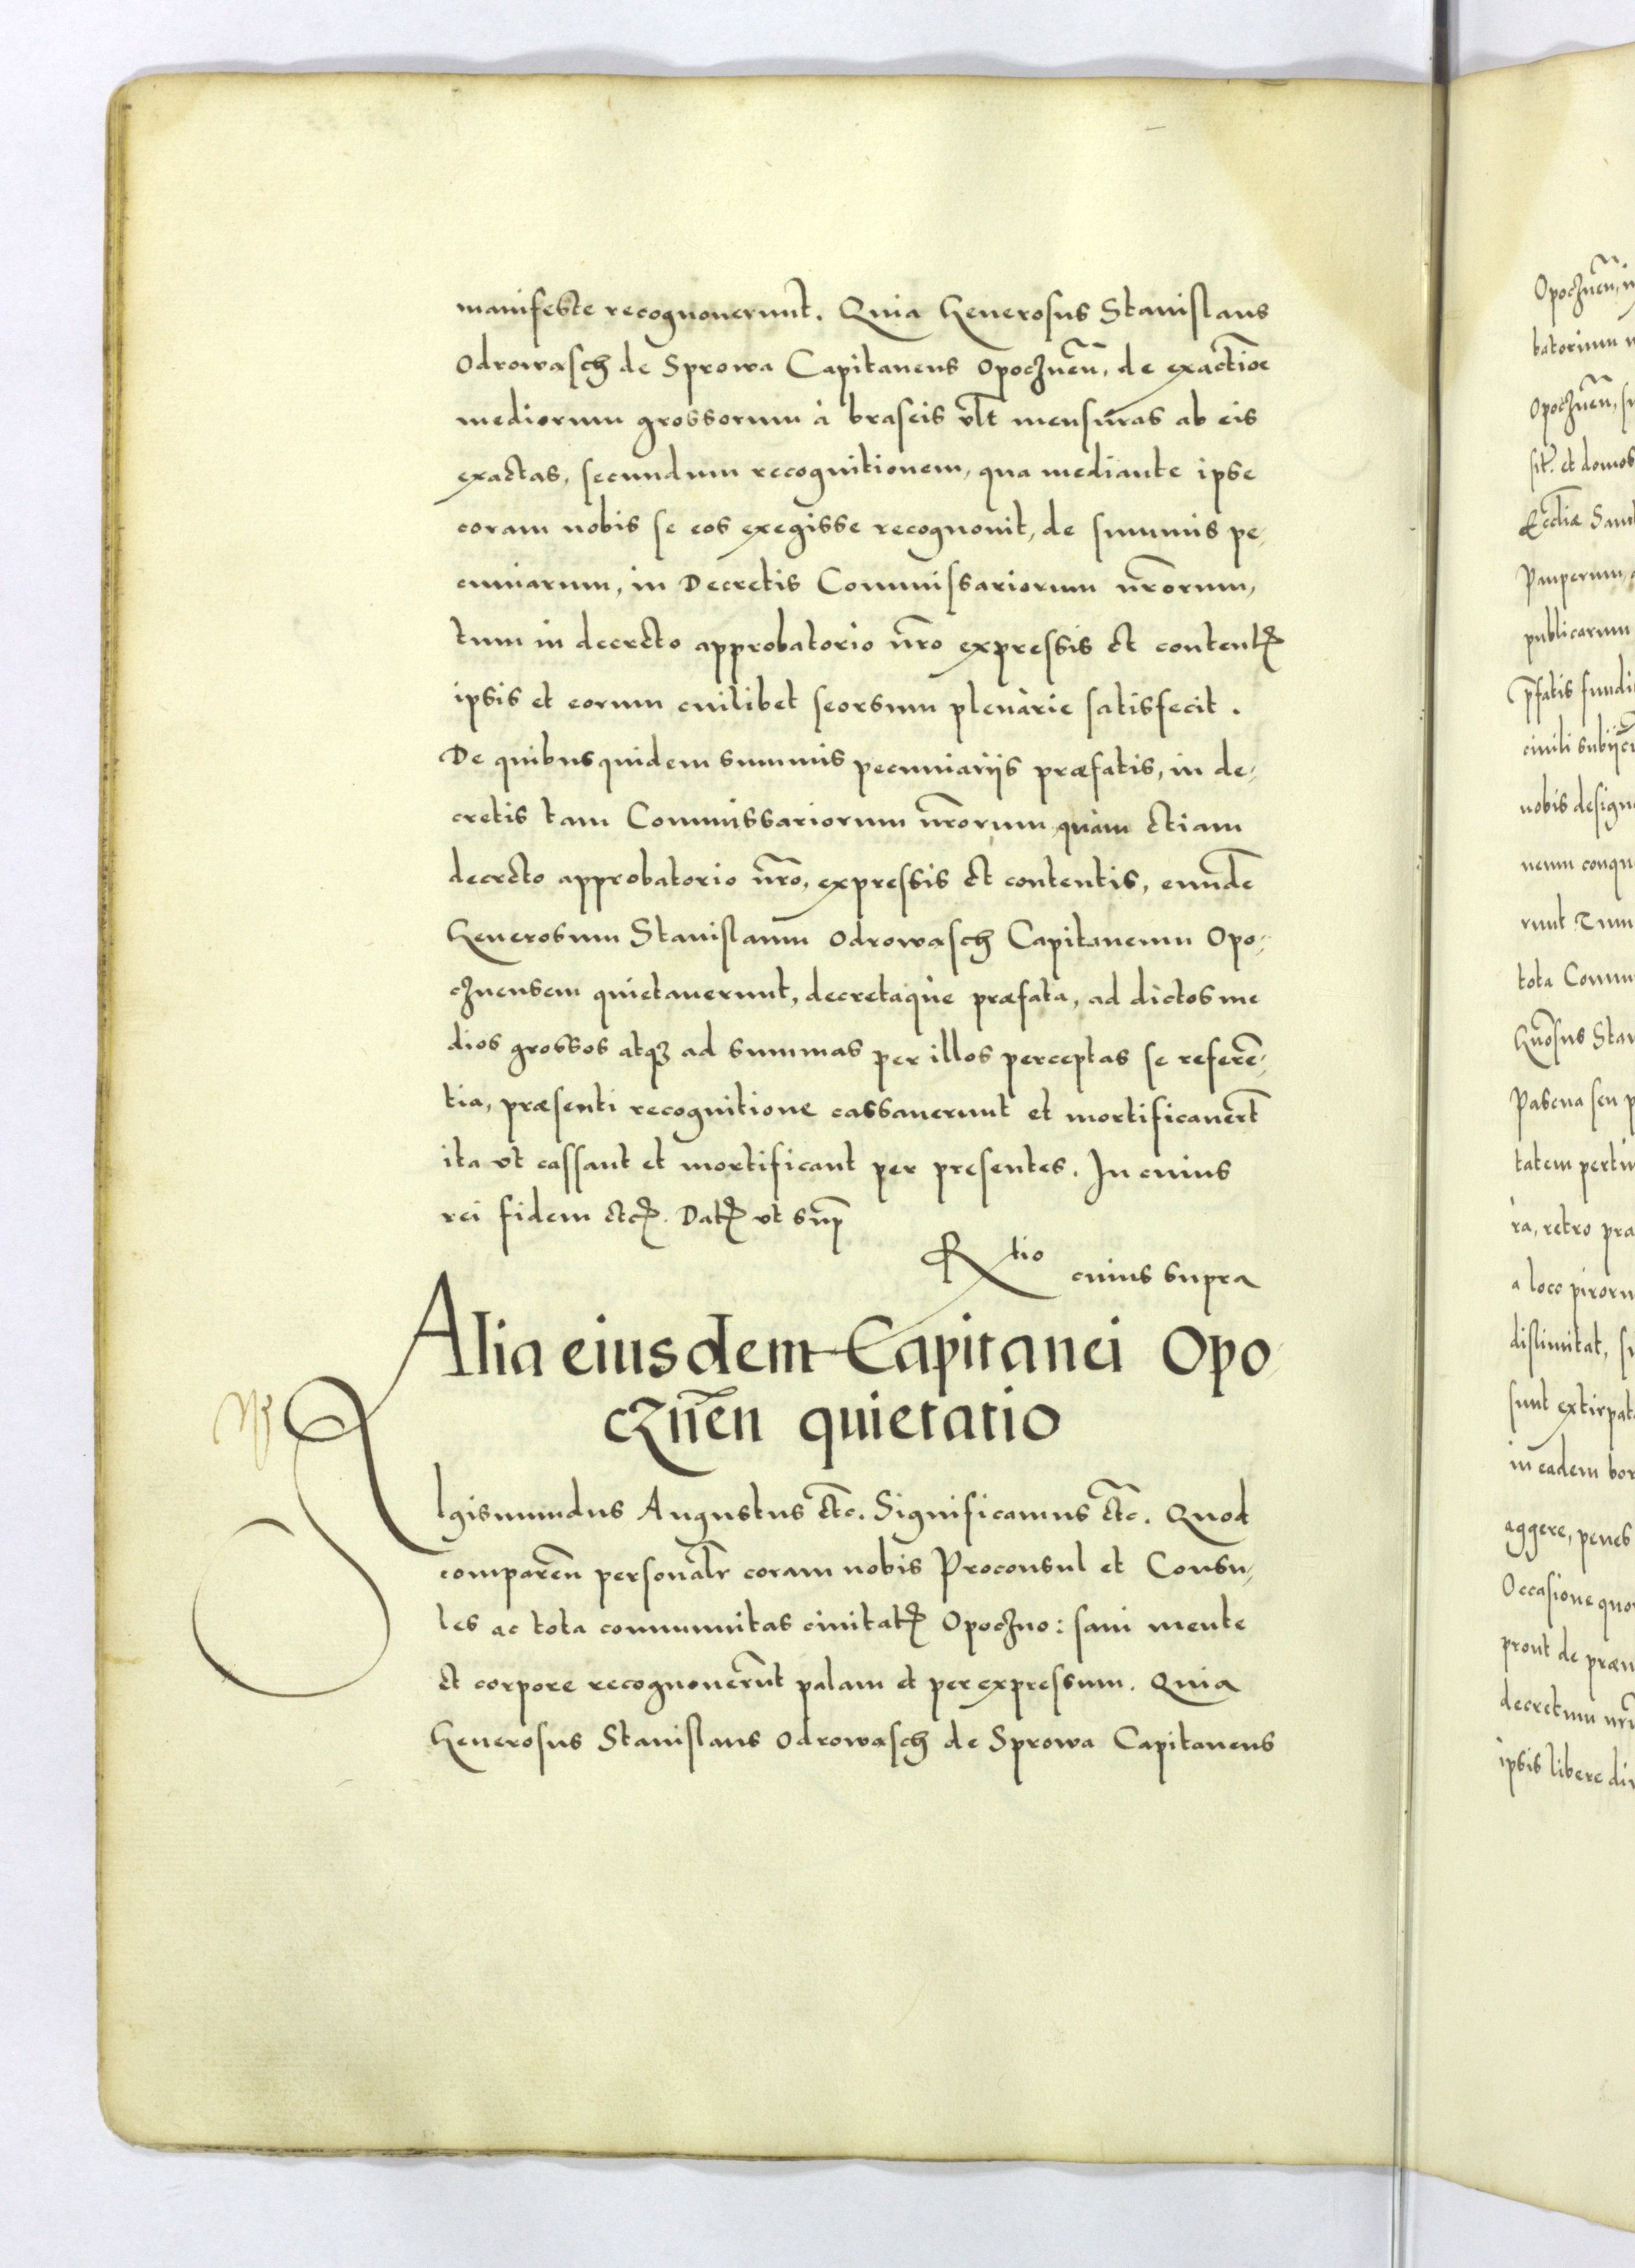 manifeste recognoverunt. Quia Generosus Stanislaus
Odrowasch de Sprowa Capitaneus Opocznēn, de exactiōe
mediorum grossorum à braseis vl̄t mensuras ab eis
exactas, secundum recognitionem, qua mediante ipse
coram nobis se eos exegisse recognovit, de summis pe-
cuniarum, in Decretis Commissariorum nr̄orum,
tum in decreto approbatorio nr̄o expressis et contentꝭ
ipsis et eorum cuilibet seorsum plenàrie satisfecit.
De quibus quidem summis pecuniarijs præfatis, in de-
cretis tam Commissariorum nr̄orum quàm etiam
decreto approbatorio nr̄o, expressis et contentis, eundē
Generosum Stanislaum Odrowasch Capitaneum Opo-
cznensem quietaverunt, decretaque præfata, ad dictos me
dios grossos atqꝫ ad summas per illos perceptas se referē-
tia, præsenti recognitione cassaverunt et mortificaver̄t
ita vt cassant et mortificant per presentes. In cuius
rei fidem etcꝭ. Datꝭ vt sup̄
Rtio cuius supra
Alia eiusdem Capitanei Opo-
cznēn quietatio
Sgismundus Augustus etc̄. Significamus etc̄. Quod
comparēn personalr̄ coram nobis Proconsul et Consu-
les ac tota communitas civitatꝭ Opoczno: sani mente
et corpore recognover̄unt palam et per expressum. Quia
Generosus Stanislaus Odrowasch de Sprowa Capitaneus
Opocznēn,
batorium
Opocznēn,
sit. et domos
Eccl̄iæ
Pauperum,
publicarum
p̄fatis
civili
nobis
nemu
runt. Tum
tota
Gn̄osus
Pascua seu
tatem
ra, retro
a loco
dislimitat,
sunt
in eadem
aggere, penes
Occasione
prout de
decretum
ipsis libere